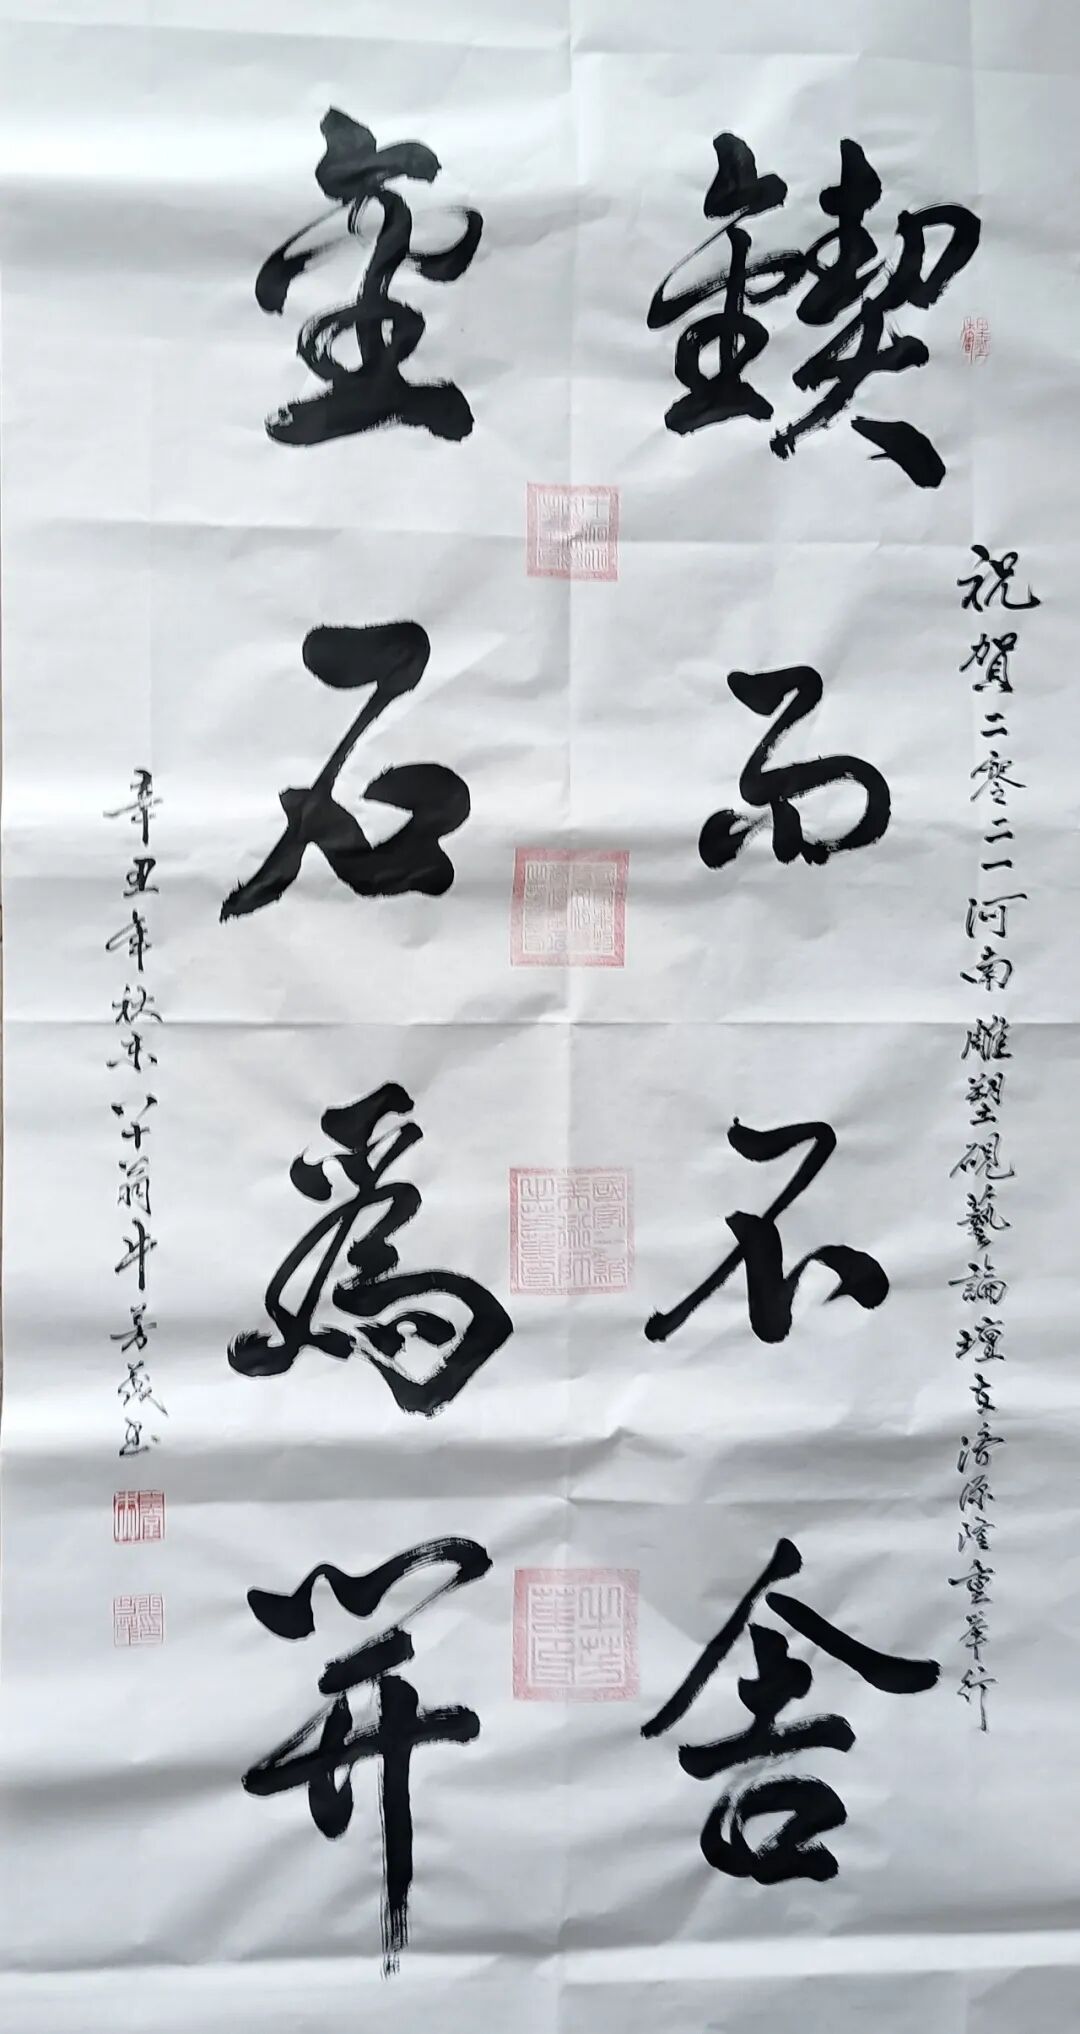 祝賀二零二一河南雕塑硯藝論壇在濟源隆重举行
鍥而不舍
金石為開
辛丑年秋末八十翁牛芳義書